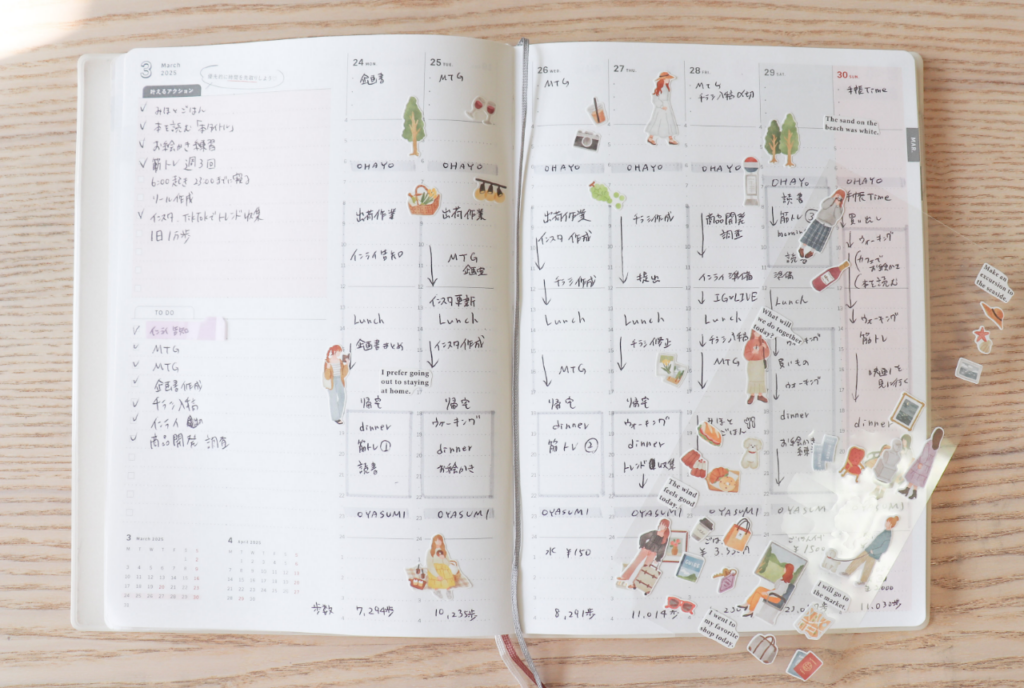 3 March
2025
叶えるアクション
みほとごはん
本を読む
お絵かき練習
筋トレ 週3回
6:00起き
リール作成
インスタ、
トレンド収集
1日1万歩
TO DO
MTG
MTG
企画書作成
チラシ入稿
インライ
商品開発 調査
3 March 2025
4 April 2025
24 MON.
企画書
OHAYO
出荷作業
Lunch
企画書まとめ
帰宅
dinner
筋トレ①
読書
OYASUMI
歩数 7,294歩
25 TUE.
MTG
OHAYO
出荷作業
MTG
企画室
インスタ更新
Lunch
インスタ作成
I prefer going
out to staying
at home.
帰宅
ウォーキング
dinner
お絵かき
OYASUMI
10,235歩
26 WED.
MTG
OHAYO
出荷作業
インスタ作成
チラシ作成
Lunch
MTG
帰宅
dinner
筋トレ②
OYASUMI
水 ¥150
8,291歩
27 THU.
OHAYO
チラシ作成
提出
Lunch
チラシ修正
帰宅
ウォーキング
dinner
トレンド収集
OYASUMI
11,014歩
28 FRI.
MTG
チラシ入稿〆切
OHAYO
商品開発
調査
インライ準備
IG LIVE
Lunch
チラシ入稿
MTG
みほと
ごはん
The wind
feels good
today.
OYASUMI
29 SAT.
OHAYO
読書
筋トレ③
準備
Lunch
What will
we do together
today?
ウォーキング
買いもの
ウォーキング
dinner
お絵かき
OYASUMI
I went to
my favorite
shop today.
30 SUN.
手帳Time
The sand on the
beach was white.
OHAYO
手帳Time
買い出し
ウォーキング
カフェで
お絵かき
本を読む
ウォーキング
筋トレ
映画を
見に行く
dinner
I will go to
the market.
11,032歩
MAR.
Make an
excursion to
the seaside.